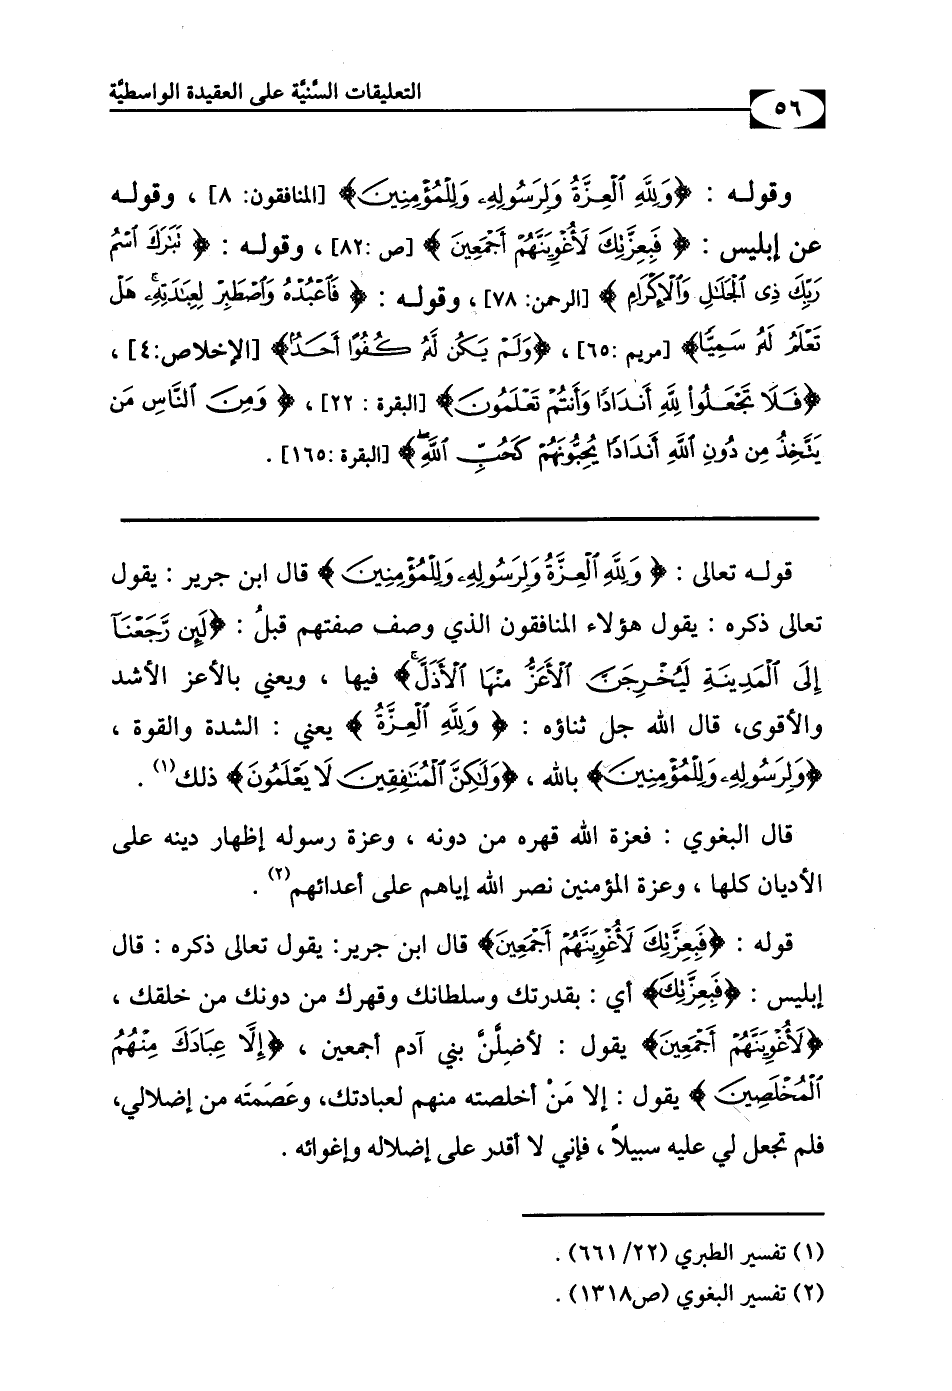 ٥٦ التعليقات السَّنيَّة على العقيدة الواسطيَّة
وقولـه : ﴿وَلِلَّهِ ٱلْعِزَّةُ وَلِرَسُولِهِۦ وَلِلْمُؤْمِنِينَ﴾ [المنافقون: ٨] ، وقولـه
عن إبليس : ﴿ فَبِعِزَّتِكَ لَأُغْوِيَنَّهُمْ أَجْمَعِينَ ﴾ [ص :٨٢] ، وقولـه : ﴿ تَبَٰرَكَ ٱسْمُ
رَبِّكَ ذِى ٱلْجَلَٰلِ وَٱلْإِكْرَامِ ﴾ [الرحمن: ٧٨] ، وقولـه : ﴿ فَٱعْبُدْهُ وَٱصْطَبِرْ لِعِبَٰدَتِهِۦۚ هَلْ
تَعْلَمُ لَهُۥ سَمِيًّا﴾ [مريم :٦٥] ، ﴿وَلَمْ يَكُن لَّهُۥ كُفُوًا أَحَدٌۢ﴾ [الإخلاص:٤] ،
﴿فَلَا تَجْعَلُوا۟ لِلَّهِ أَندَادًا وَأَنتُمْ تَعْلَمُونَ﴾ [البقرة : ٢٢] ، ﴿ وَمِنَ ٱلنَّاسِ مَن
يَتَّخِذُ مِن دُونِ ٱللَّهِ أَندَادًا يُحِبُّونَهُمْ كَحُبِّ ٱللَّهِۖ﴾ [البقرة :١٦٥] .
قولـه تعالى : ﴿ وَلِلَّهِ ٱلْعِزَّةُ وَلِرَسُولِهِۦ وَلِلْمُؤْمِنِينَ ﴾ قال ابن جرير : يقول
تعالى ذكره : يقول هؤلاء المنافقون الذي وصف صفتهم قبلُ : ﴿لَئِن رَّجَعْنَآ
إِلَى ٱلْمَدِينَةِ لَيُخْرِجَنَّ ٱلْأَعَزُّ مِنْهَا ٱلْأَذَلَّۚ﴾ فيها ، ويعني بالأعز الأشد
والأقوى، قال الله جل ثناؤه : ﴿ وَلِلَّهِ ٱلْعِزَّةُ ﴾ يعني : الشدة والقوة ،
﴿وَلِرَسُولِهِۦ وَلِلْمُؤْمِنِينَ﴾ بالله ، ﴿وَلَٰكِنَّ ٱلْمُنَٰفِقِينَ لَا يَعْلَمُونَ﴾ ذلك(١) .
قال البغوي : فعزة الله قهره من دونه ، وعزة رسوله إظهار دينه على
الأديان كلها ، وعزة المؤمنين نصر الله إياهم على أعدائهم(٢) .
قوله : ﴿فَبِعِزَّتِكَ لَأُغْوِيَنَّهُمْ أَجْمَعِينَ﴾ قال ابن جرير: يقول تعالى ذكره : قال
إبليس : ﴿فَبِعِزَّتِكَ﴾ أي : بقدرتك وسلطانك وقهرك من دونك من خلقك ،
﴿لَأُغْوِيَنَّهُمْ أَجْمَعِينَ﴾ يقول : لأضِلَّنَّ بني آدم أجمعين ، ﴿إِلَّا عِبَادَكَ مِنْهُمُ
ٱلْمُخْلَصِينَ ﴾ يقول : إلا مَنْ أخلصته منهم لعبادتك، وعَصَمتَه من إضلالي،
فلم تجعل لي عليه سبيلاً ، فإني لا أقدر على إضلاله وإغوائه .
(١) تفسير الطبري (٢٢/ ٦٦١) .
(٢) تفسير البغوي (ص١٣١٨) .